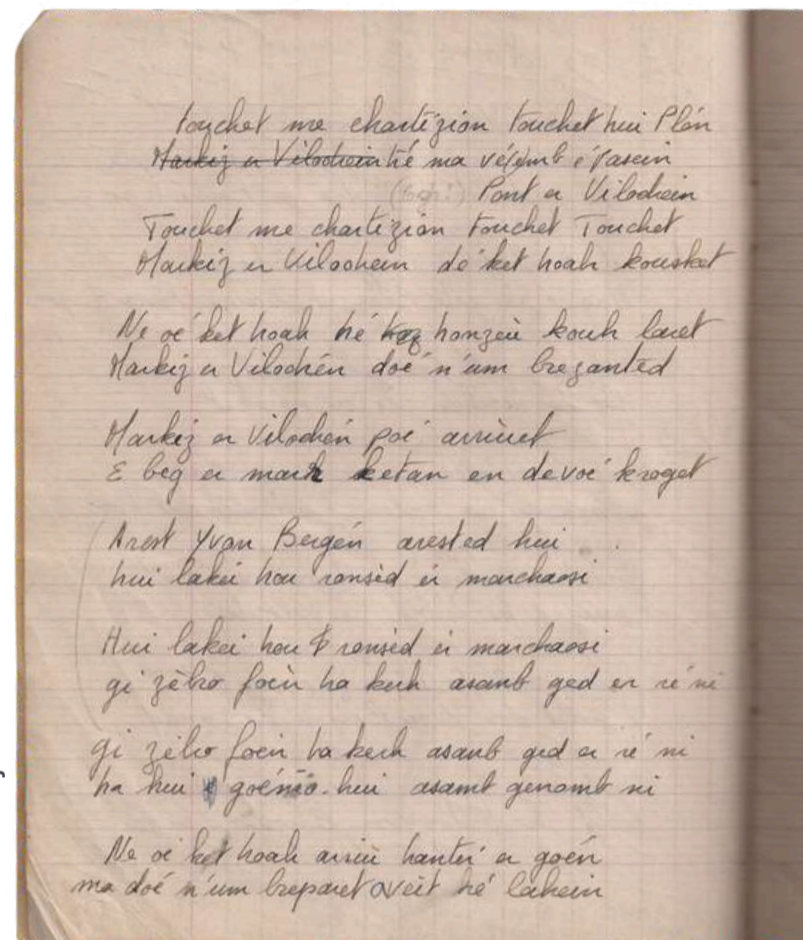 touchet me chartézion touchet hui Plén
Markiz er Vilochein hé ma vé(e)mb é pasein
Pont er Vilochein
Touchet me chartézion touchet Touchet
Markiz er Vilochein dé ket hoah kousket
Ne oé ket hoah hé honzeù kouh laret
Markiz er Vilochén doé n'um brezanted
Markiz er Vilochén poé arriùet
E beg er mark ketan en devoé kroget
Arest Yvon Bergén arested hui
hui lakei hou ronsèd ér marchaosi
Hui lakei hou ronsèd ér marchaosi
gi zèbro foén ha kerh asamb ged er ré ni
gi zèbro foén ha kerh asamb ged er ré ni
ha hui goénio-hui asamt genomb ni
Ne oé ket hoah arriù hantér er goén
ma doé n'um breparet aveit hé lahein